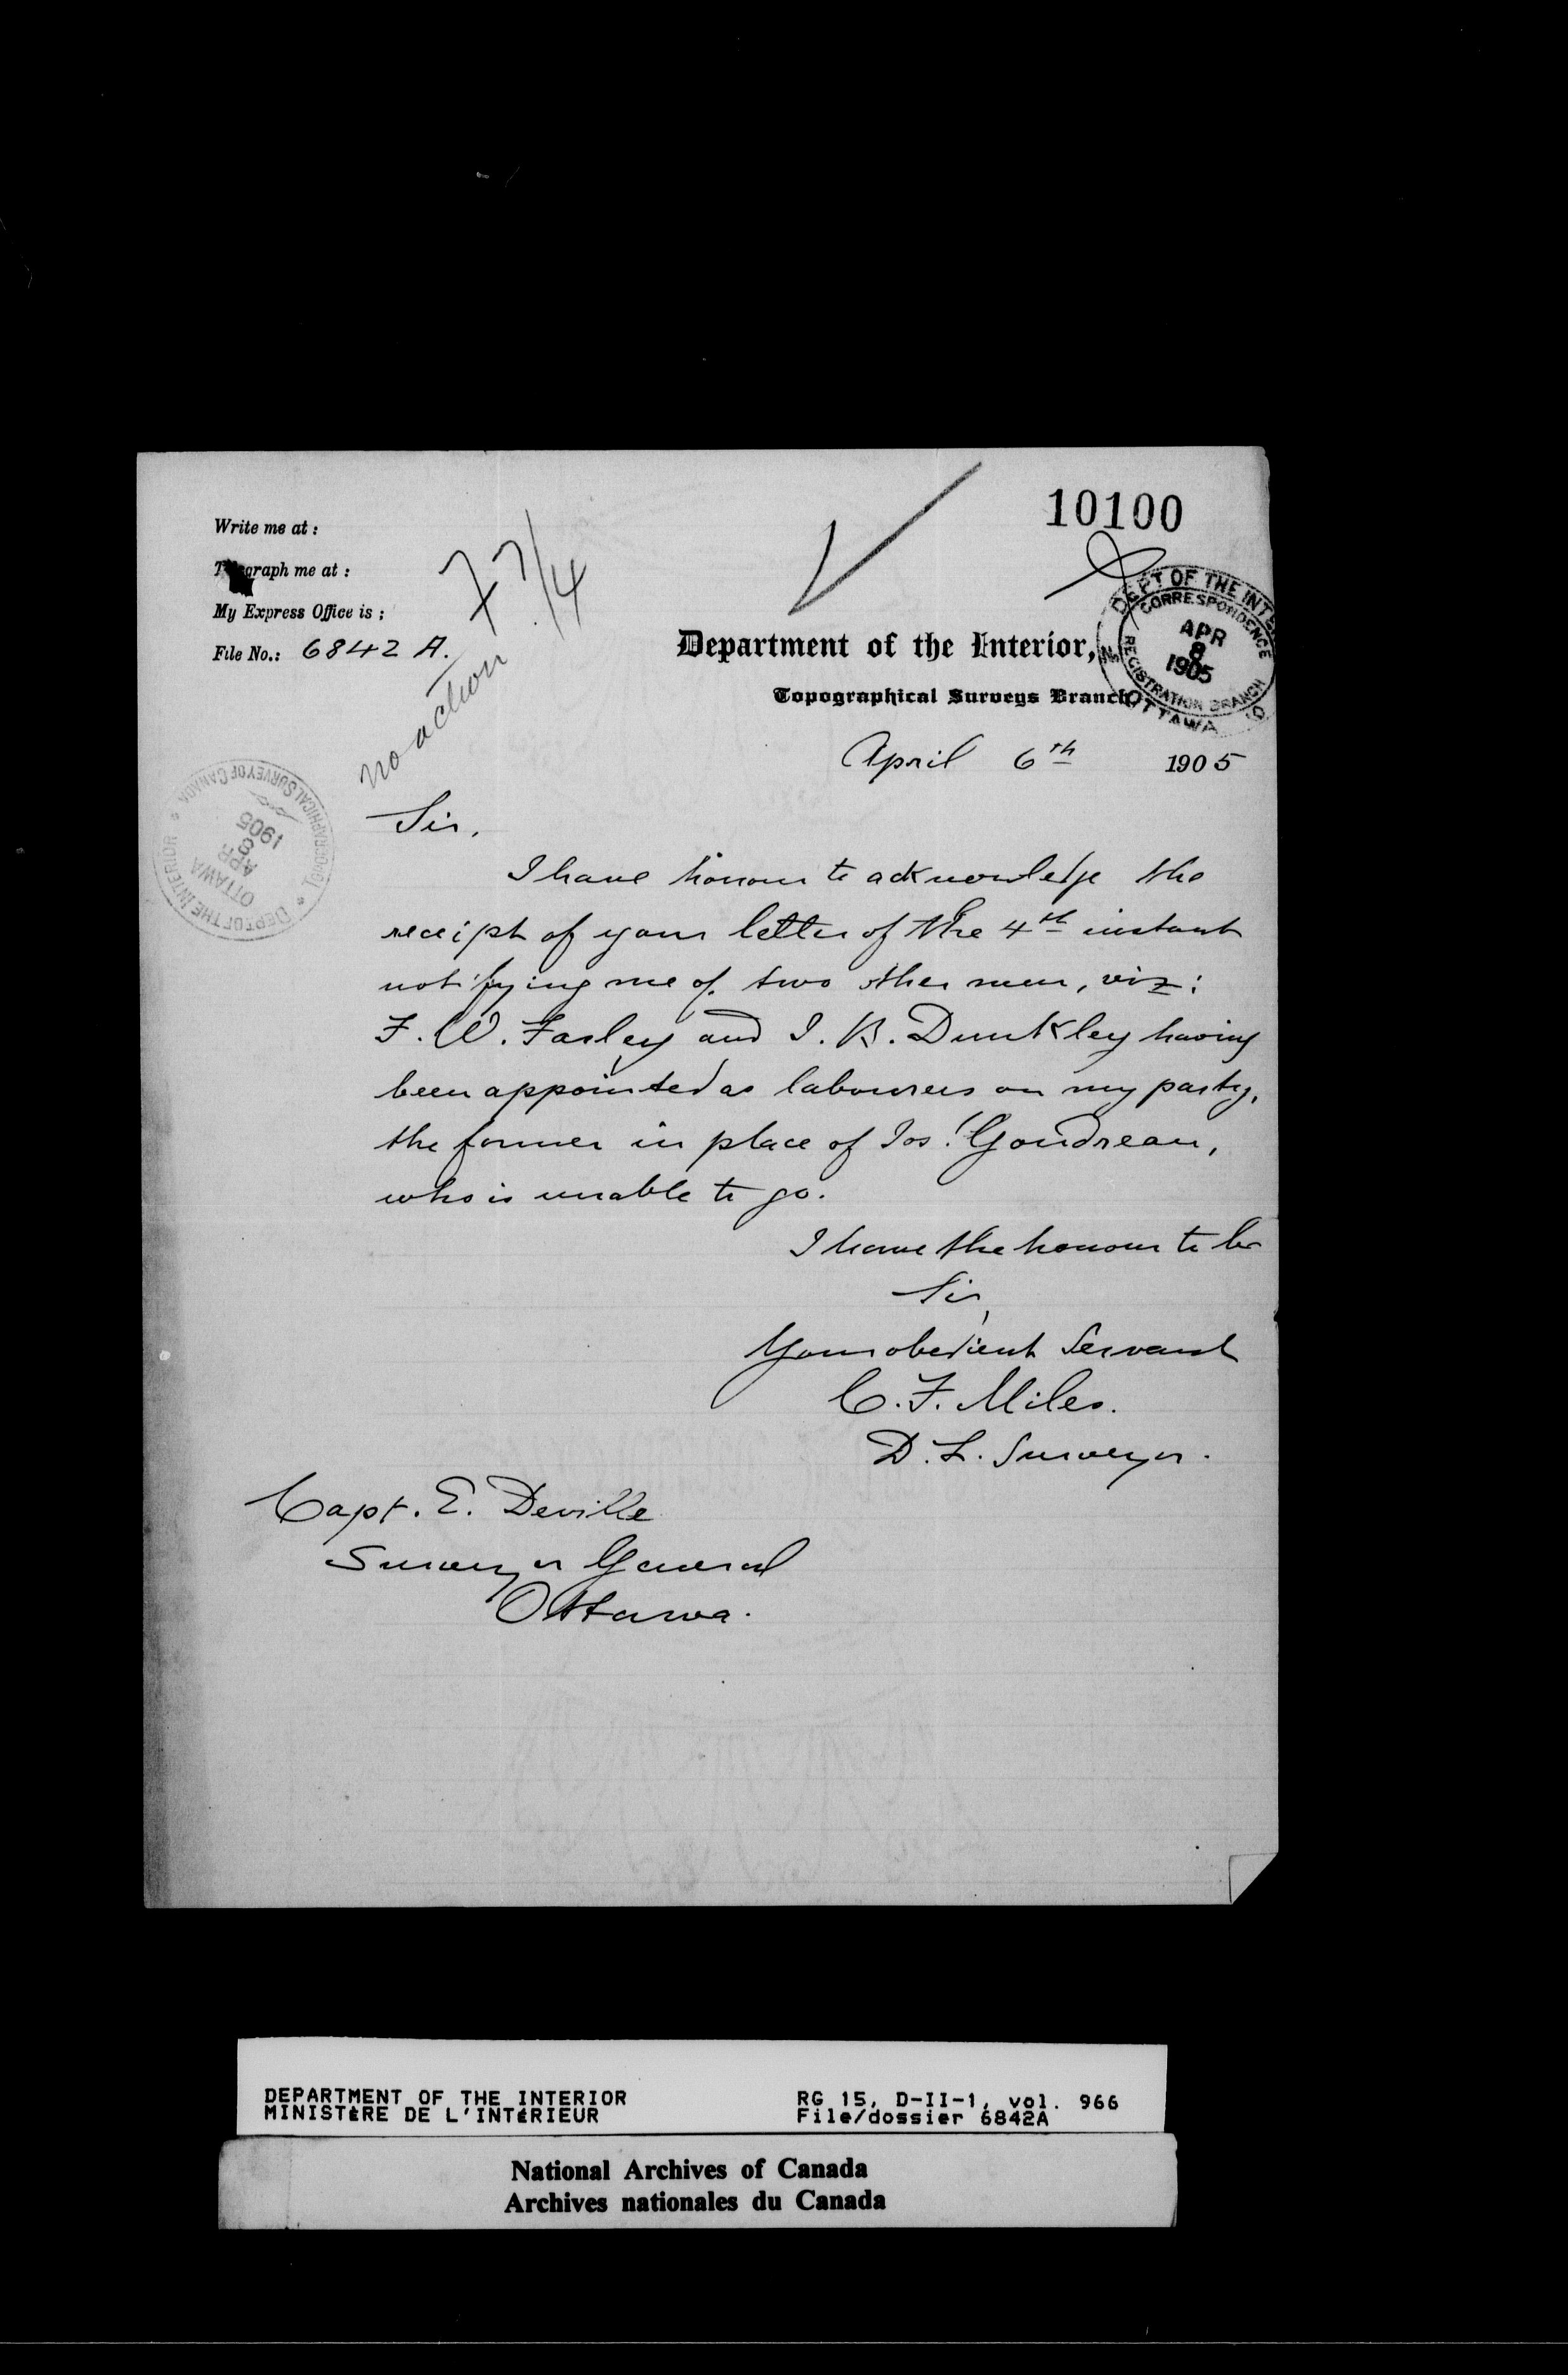 10100
Write me at :
Telegraph me at :
My Express Office is ;
File No.: 6842 A.
7/4
no action
DEPT OF THE INTERIOR
CORRESPONDENCE
APR
8
1905
REGISTRATION BRANCH
OTTAWA
Department of the Interior,
Topographical Surveys Branch
April 6th 1905
TOPOGRAPHICAL SURVEY OF CANADA
DEPT OF THE INTERIOR
OTTAWA
APR
8
1905
Sir,
I have honour to acknowledge the
receipt of your letter of the 4th instant
notifying me of two other men, viz:
F. W. Farley and I. B. Dunkley having
been appointed as labourers on my party,
the former in place of Jos! Goudreau,
who is unable to go.
I have the honour to be
Sir,
Your obedient Servant
C. F. Miles.
D. L. Surveyor.
Capt. E. Deville
Surveyor General
Ottawa.
DEPARTMENT OF THE INTERIOR
MINISTÈRE DE L'INTÉRIEUR
RG 15, D-II-1, vol. 966
File/dossier 6842A
National Archives of Canada
Archives nationales du Canada